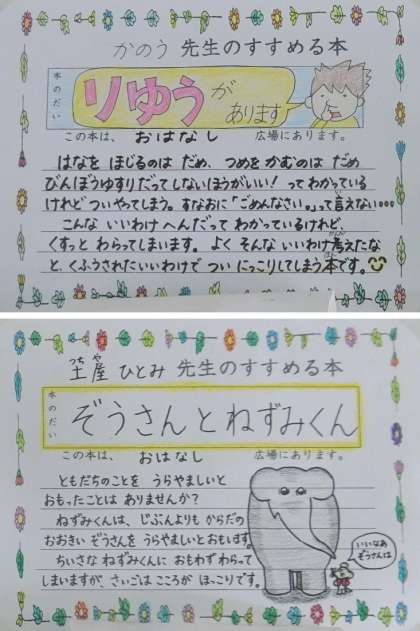 かのう 先生のすすめる本
本のだい
りゆうが
あります
この本は、 おはなし 広場にあります。
はなを ほじるのは だめ、 つめを かむのは だめ
びんぼうゆすりだってしないほうがいい！ って わかっている
けれど ついやってしまう。すなおに「ごめんなさい。」って言えない…
こんな いいわけ へんだって わかっているけれど、
くすっと わらってしまいます。 よく そんな いいわけ考えたな
と、くふうされたいいわけで ついにっこりしてしまう本です。
つち や
土屋 ひとみ 先生のすすめる本
本のだい
ぞうさんとねずみくん
この本は、 おはなし 広場にあります。
ともだちのことを うらやましいと
おもったことは ありませんか？
ねずみくんは、じぶんよりも からだの
おおきい ぞうさんを うらやましいとおもいます。
ちいさな ねずみくんに おもわず わらって
しまいますが、さいごは こころが ほっこりです。
いいなあ
ぞうさんは